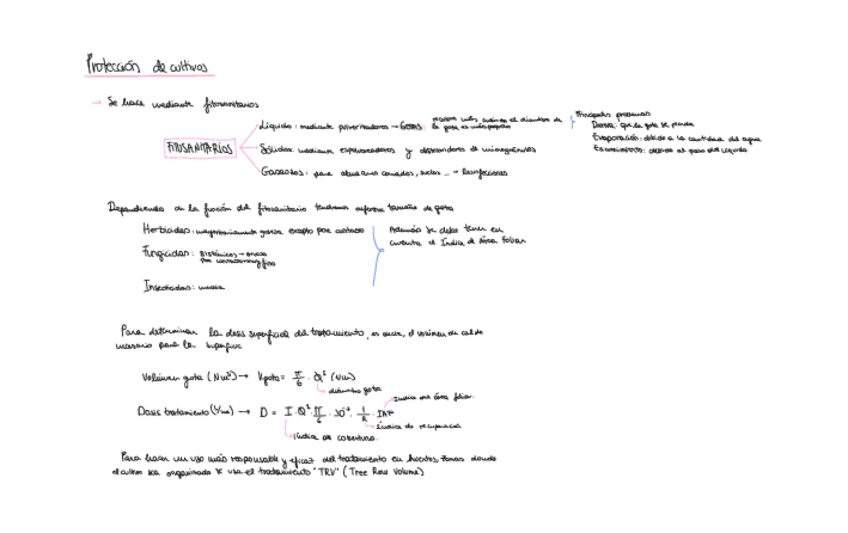 Protección de cultivos
→ Se hace mediante fitosanitarios
FITOSANITARIOS
Líquido: mediante pulverizadores → Gotas:
Sólidos: mediante espolvoreadores y distribuidores de microgránulos
Gaseosos: para almacenes cerrados, suelos ... → Desinfecciones
Principales problemas
Deriva: que la gota se pierda
Evaporación: debido a la cantidad del agua
Escurrimiento: debido al peso del líquido
Dependiendo de la función del fitosanitario tendremos diferente tamaño de gota
Herbicidas: mayoritariamente gruesa excepto por contacto
Fungicidas:
Insecticidas: media
Además se debe tener en
cuenta el Índice de Área Foliar
Para determinar la dosis superficial del tratamiento, es decir, el volumen de caldo
necesario para la superficie
Volumen gota
diámetro gota
Dosis tratamiento
Índice de área foliar
Índice de recuperación
Índice de cobertura
Para hacer un uso más responsable y eficaz del tratamiento en huertos, zonas donde
el cultivo sea organizado se usa el tratamiento "TRV" (Tree Row Volume)